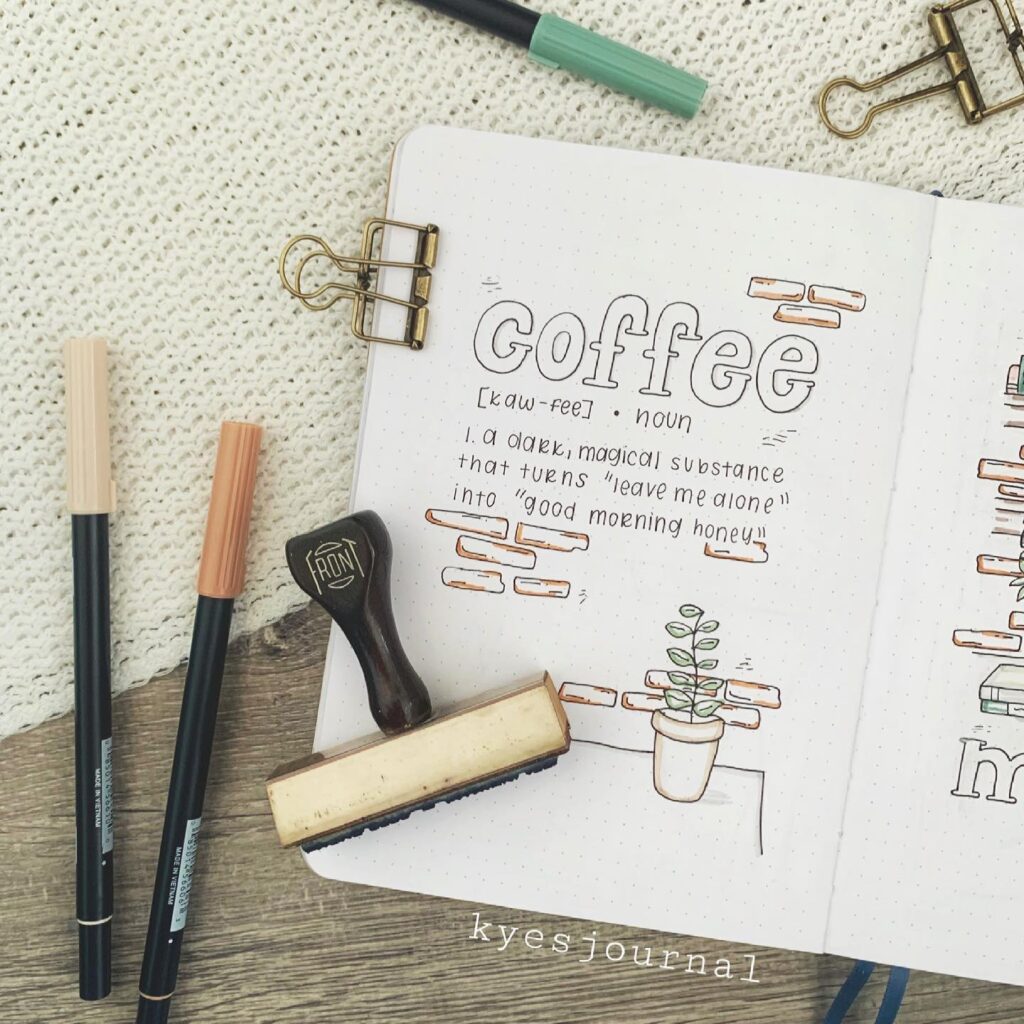 coffee
[kaw-fee] • noun
1. a dark, magical substance
that turns "leave me alone"
into "good morning honey"
FRONT
MADE IN VIETNAM
MADE IN VIETNAM
m
kyesjournal